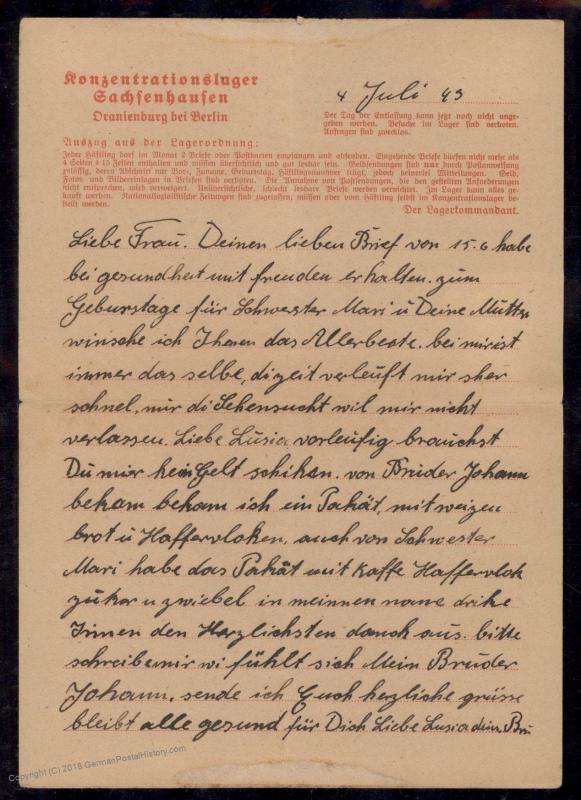 Konzentrationslager
Sachsenhausen
Oranienburg bei Berlin
4 Juli 43
Der Tag der Entlassung kann jetzt noch nicht ange-
geben werden. Besuche im Lager sind verboten.
Anfragen sind zwecklos.
Auszug aus der Lagerordnung:
Jeder Häftling darf im Monat 2 Briefe oder Postkarten empfangen und absenden. Eingehende Briefe dürfen nicht mehr als
4 Seiten à 15 Zeilen enthalten und müssen übersichtlich und gut lesbar sein. Geldsendungen sind nur durch Postanweisung
zulässig, deren Abschnitt nur Vor-, Zuname, Geburtstag, Häftlingsnummer trägt, jedoch keinerlei Mitteilungen. Geld,
Fotos und Bildereinlagen in Briefen sind verboten. Die Annahme von Postsendungen, die den gestellten Anforderungen
nicht entsprechen, wird verweigert. Unübersichtliche, schlecht lesbare Briefe werden vernichtet. Im Lager kann alles ge-
kauft werden. Nationalsozialistische Zeitungen sind zugelassen, müssen aber vom Häftling selbst im Konzentrationslager be-
stellt werden.
Der Lagerkommandant.
Liebe Frau. Deinen lieben Brief von 15.6 habe
bei gesundheit mit freuden erhalten. zum
Geburstage für Schwester Mari u Deine Mutter
winsche ich Ihenen das Allerbeste. bei mir ist
immer das selbe, di zeit verleuft mir sher
schnel, nur di Sehensucht wil mir nicht
verlassen. Liebe Lusia vorleufig brauchst
Du mir kein Gelt schiken. von Bruder Johann
bekam bekam ich ein Pakät, mit weizen
brot u Haffervloken, auch von Schwester
Mari habe das Pakät mit Kaffe Haffervlok
zukar u zwiebel in meinnen name drike
Innen den Herzlichsten danck aus. bitte
schreibe mir wi fühlt sich Mein Bruder
Johann. sende ich Euch herzliche grüsse
bleibt alle gesund für Dich Liebe Lusia dein Bru
Copyright (C) 2018 GermanPostalHistory.com